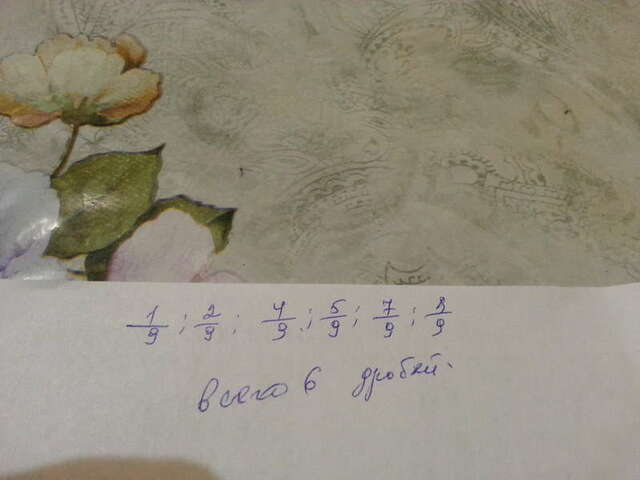 1/9 ; 2/9 ; 4/9 ; 5/9 ; 7/9 ; 8/9
всего 6 дробей.